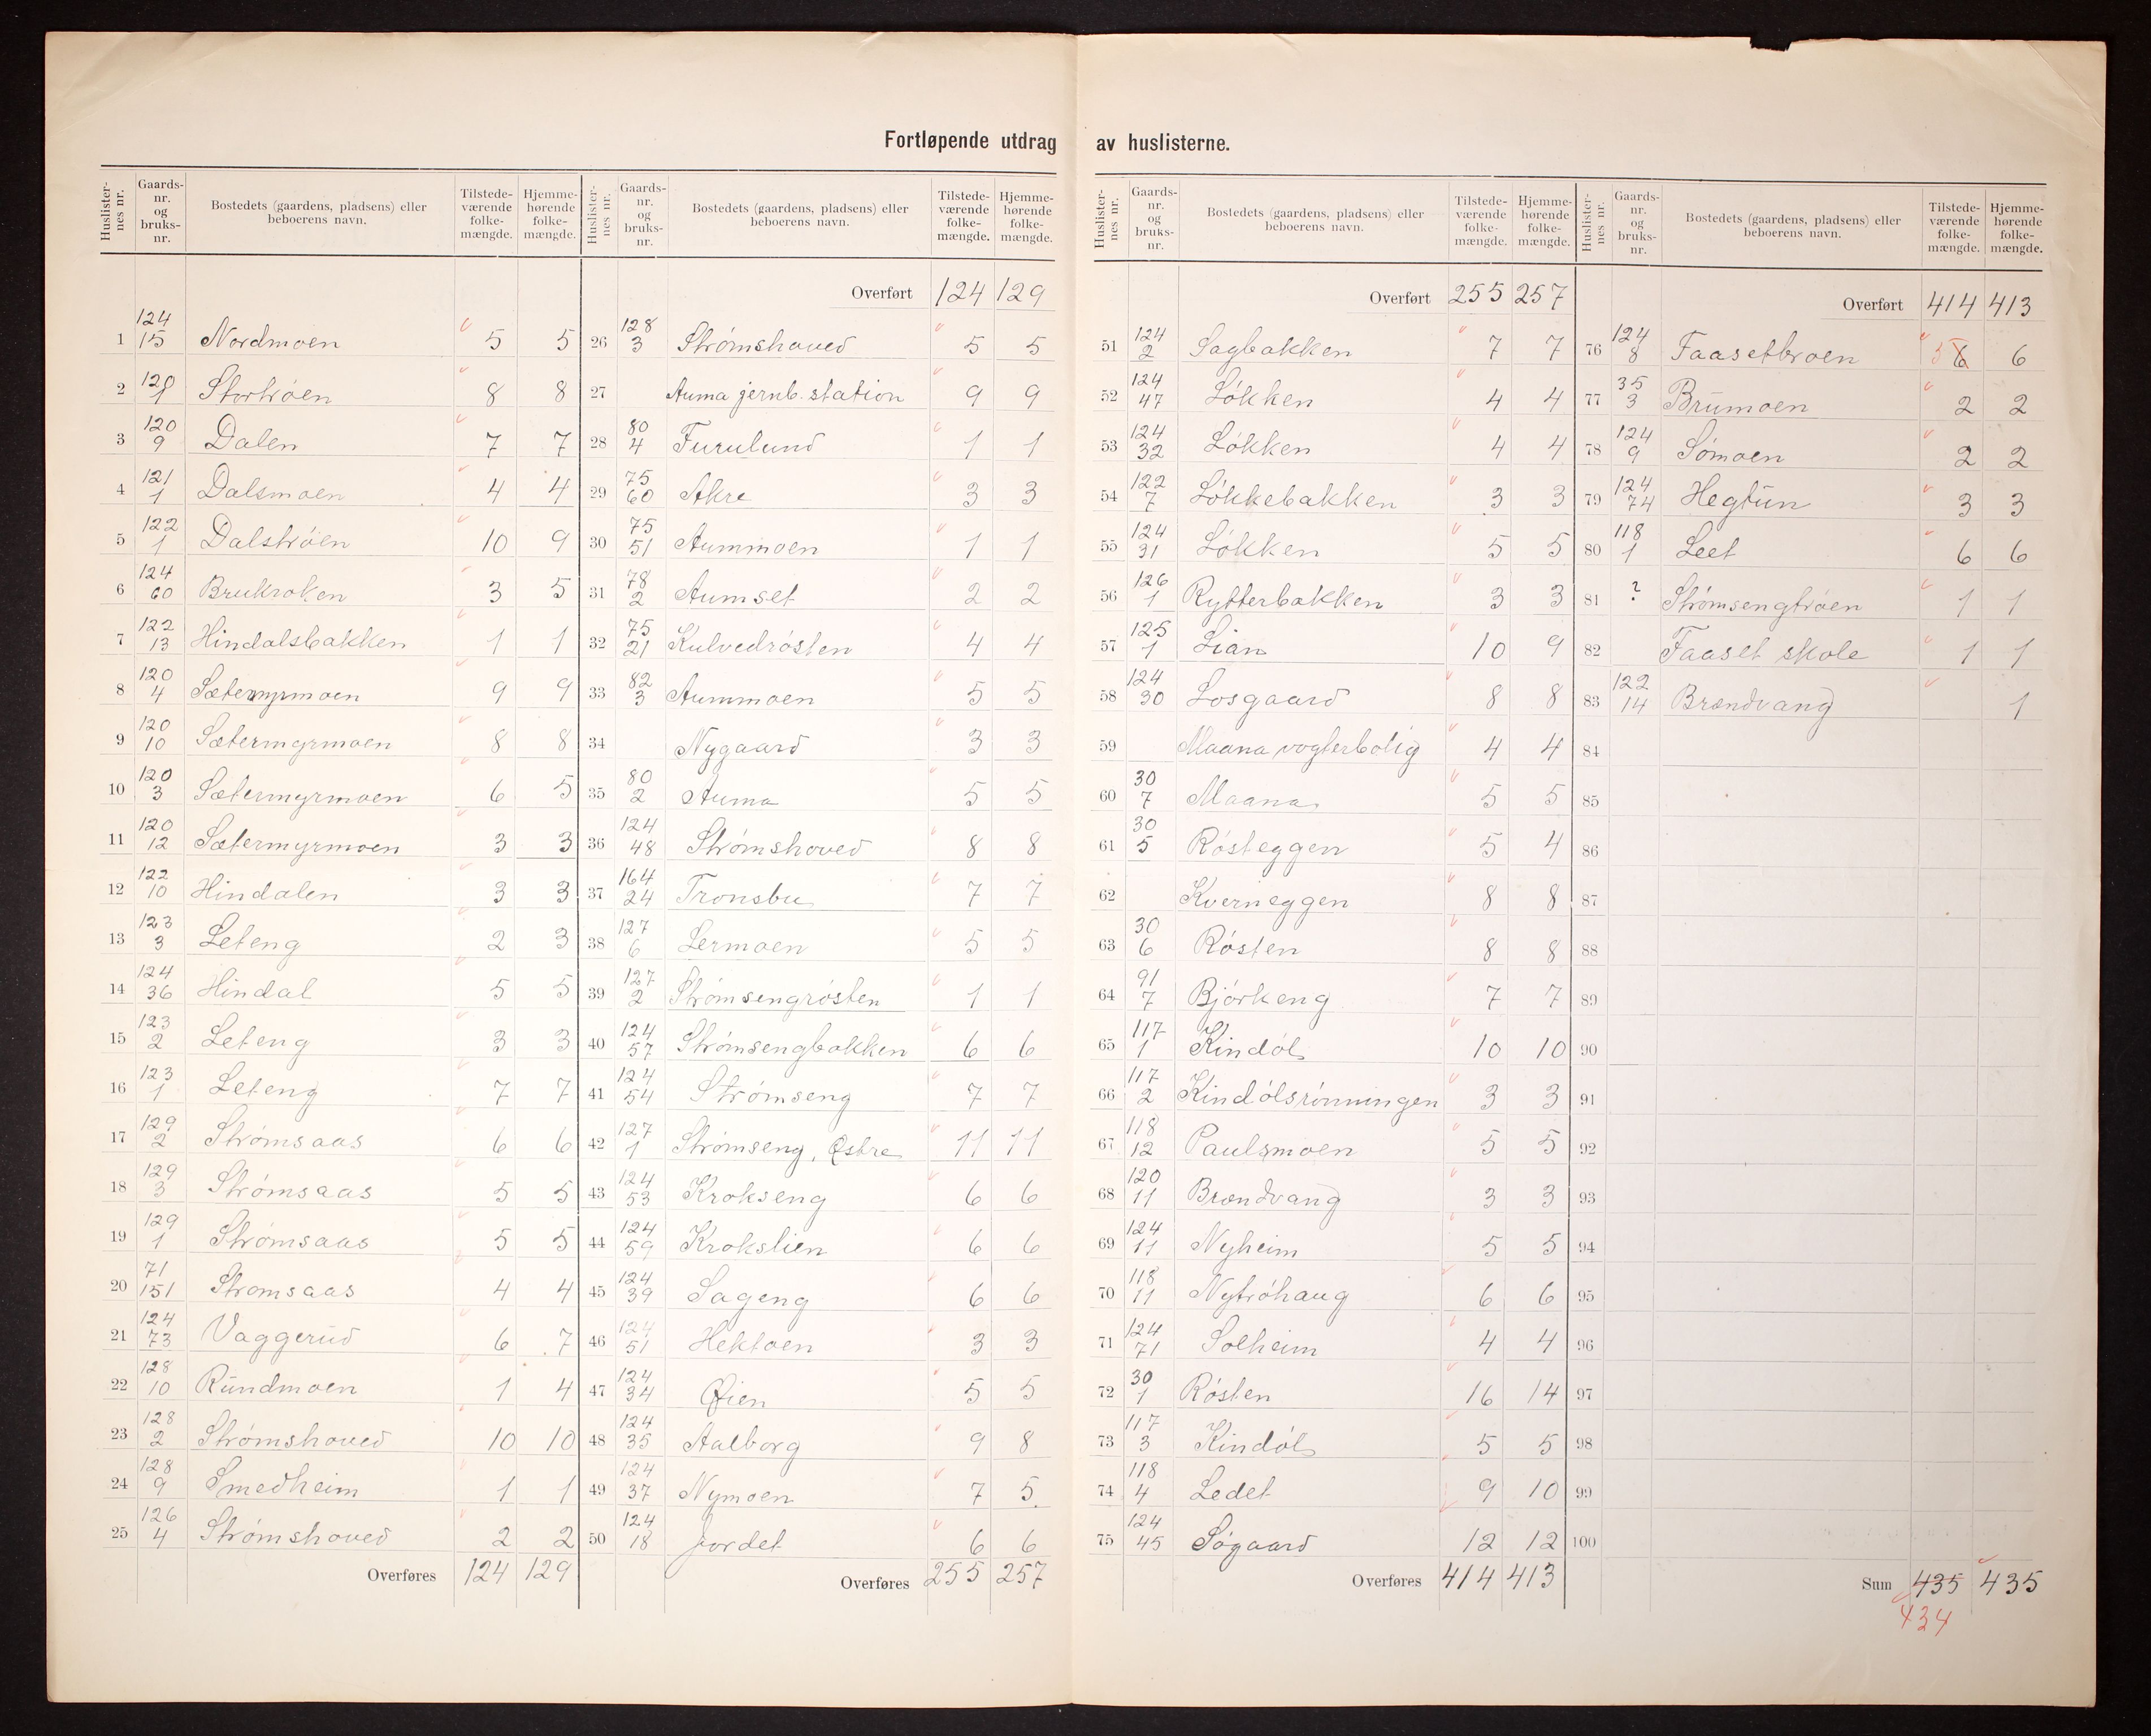 Fortløpende utdrag av huslisterne.
Huslisternes nr. Gaards-nr. og bruks-nr. Bostedets (gaardens, pladsens) eller beboerens navn. Tilstede-værende folke-mængde. Hjemme-hørende folke-mængde.
1 124/15 Nordmoen 5 5
2 120/1 Stortrøen 8 8
3 120/9 Dalen 7 7
4 121/1 Dalsmoen 4 4
5 122/1 Dalstrøen 10 9
6 124/60 Brukroken 3 5
7 122/13 Hindalsbakken 1 1
8 120/4 Sætermyrmoen 9 9
9 120/10 Sætermyrmoen 8 8
10 120/3 Sætermyrmoen 6 5
11 120/12 Sætermyrmoen 3 3
12 122/10 Hindalen 3 3
13 123/3 Leteng 2 3
14 124/36 Hindal 5 5
15 123/2 Leteng 3 3
16 123/1 Leteng 7 7
17 129/2 Strømsaas 6 6
18 129/3 Strømsaas 5 5
19 129/1 Strømsaas 5 5
20 71/151 Strømsaas 4 4
21 124/73 Vaggerud 6 7
22 128/10 Rundmoen 1 4
23 128/2 Strømshoved 10 10
24 128/9 Smedheim 1 1
25 126/4 Strømshoved 2 2
Overføres 124 129
Huslisternes nr. Gaards-nr. og bruks-nr. Bostedets (gaardens, pladsens) eller beboerens navn. Tilstede-værende folke-mængde. Hjemme-hørende folke-mængde.
Overført 124 129
26 128/3 Strømshoved 5 5
27 Auma jernb. station 9 9
28 80/4 Furulund 1 1
29 75/60 Akre 3 3
30 75/51 Aummoen 1 1
31 78/2 Aumset 2 2
32 75/21 Kulvedrøsten 4 4
33 82/3 Aummoen 5 5
34 Nygaard 3 3
35 80/2 Auma 5 5
36 124/48 Strømshoved 8 8
37 164/24 Tronsbu 7 7
38 127/6 Lermoen 5 5
39 127/2 Strømsengrøsten 1 1
40 124/57 Strømsengbakken 6 6
41 124/54 Strømseng 7 7
42 127/1 Strømseng, Østre 11 11
43 124/53 Krokseng 6 6
44 124/59 Krokslien 6 6
45 124/39 Sageng 6 6
46 124/51 Hektoen 3 3
47 124/34 Øien 5 5
48 124/35 Aalborg 9 8
49 124/37 Nymoen 7 5
50 124/18 Jordet 6 6
Overføres 255 257
Huslisternes nr. Gaards-nr. og bruks-nr. Bostedets (gaardens, pladsens) eller beboerens navn. Tilstede-værende folke-mængde. Hjemme-hørende folke-mængde.
Overført 255 257
51 124/2 Sagbakken 7 7
52 124/47 Løkken 4 4
53 124/32 Løkken 4 4
54 122/7 Løkkebakken 3 3
55 124/31 Løkken 5 5
56 126/1 Rytterbakken 3 3
57 125/1 Lian 10 9
58 124/30 Losgaard 8 8
59 Maana vogterbolig 4 4
60 30/7 Maana 5 5
61 30/5 Røsteggen 5 4
62 Kverneggen 8 8
63 30/6 Røsten 8 8
64 91/7 Bjørkeng 7 7
65 117/1 Kindøl 10 10
66 117/2 Kindølsrønningen 3 3
67 118/12 Paulsmoen 5 5
68 120/11 Brændvang 3 3
69 124/11 Nyheim 5 5
70 118/11 Nytrøhaug 6 6
71 124/71 Solheim 4 4
72 30/1 Røsten 16 14
73 117/3 Kindøl 5 5
74 118/4 Ledet 9 10
75 124/45 Søgaard 12 12
Overføres 414 413
Huslisternes nr. Gaards-nr. og bruks-nr. Bostedets (gaardens, pladsens) eller beboerens navn. Tilstede-værende folke-mængde. Hjemme-hørende folke-mængde.
Overført 414 413
76 124/8 Faasetbroen 5 6 6
77 35/3 Brumoen 2 2
78 124/9 Sømoen 2 2
79 124/74 Hegtun 3 3
80 118/1 Leet 6 6
81 ? Strømsengtrøen 1 1
82 Faaset skole 1 1
83 122/14 Brændvang 1
84
85
86
87
88
89
90
91
92
93
94
95
96
97
98
99
100
Sum 435 435
434